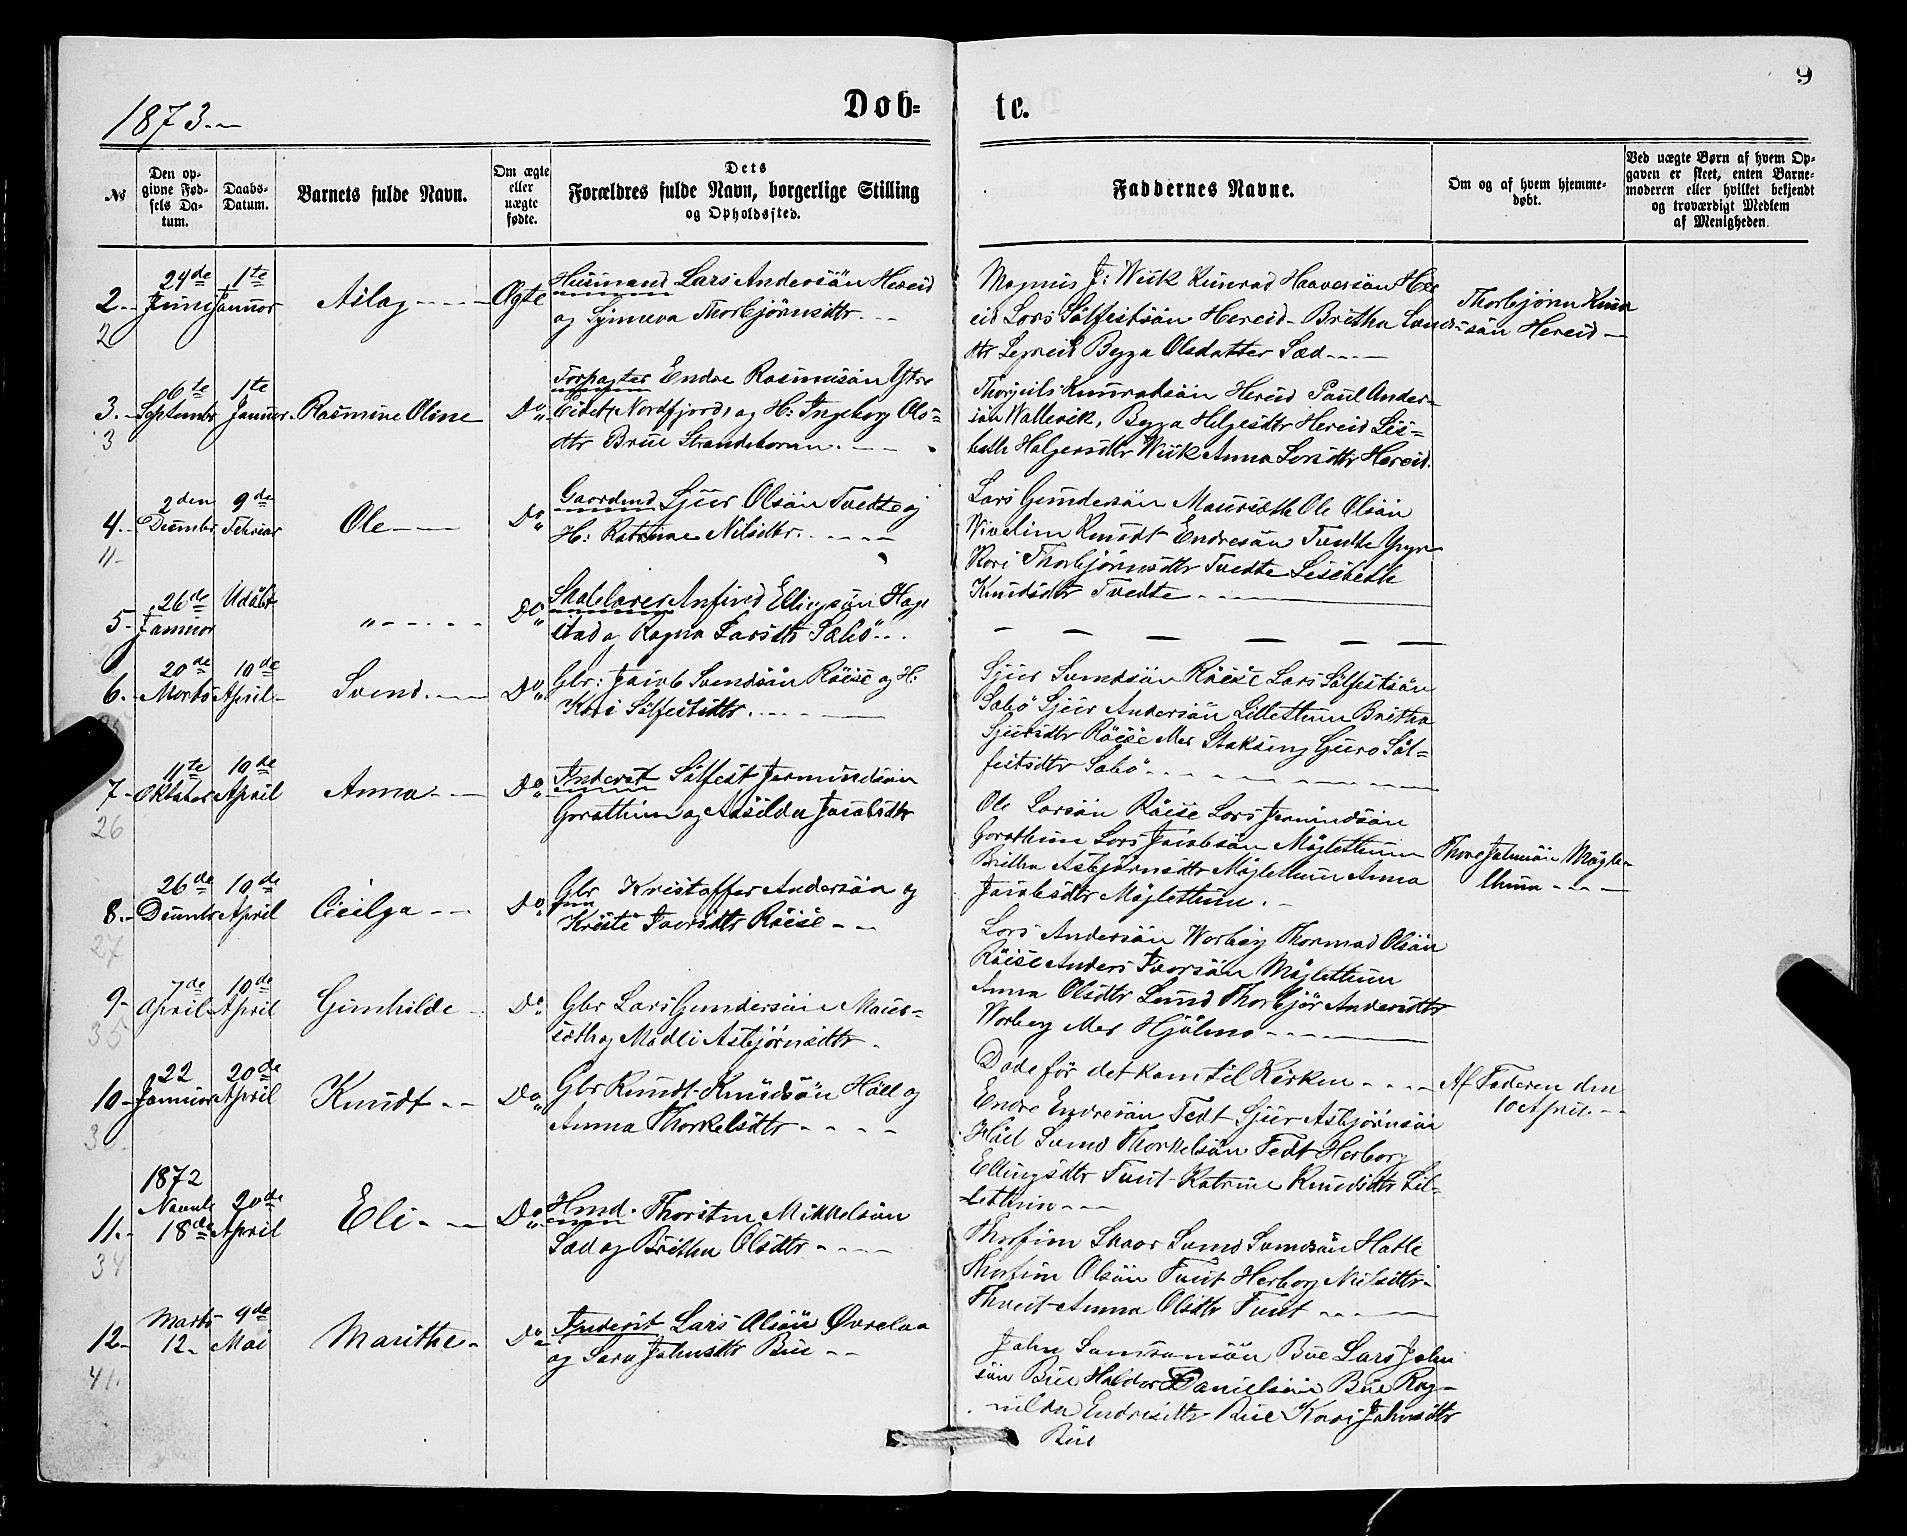 9
1873.
Døb-
te.
No
Den op-
givne Fød-
sels Da-
tum.
Daabs-
Datum.
Barnets fulde Navn.
Om ægte
eller
uægte
fødte.
Dets
Forældres fulde Navn, borgerlige Stilling
og Opholdssted.
Faddernes Navne.
Om og af hvem hjemme-
døbt.
Ved uægte Børn af hvem Op-
gaven er skeet, enten Barne-
moderen eller hvilket bekjendt
og troværdigt Medlem
af Menigheden.
2
24de Juni
1te Januar
Aslag
Ægte
Husmand Lars Andersön Hereid
og Synneva Thorbjörnsdtr.
Magnus J: Wiik Kunrad Haaversön He
eid Lars Sölfestsön Hereid Britha
Legreid Bygga Olsdatter Sæd
Thorbjörn Knu
sön Hereid
2
3.
6te Septembr
1te Januar
Rasmine Oline
Do
Forpagter Endre Rasmusön Ytre
Eidet Nordfjord, og H: Ingeborg Ols-
dtr Brue Strandebarm.
Thorgils Kunradsön Hereid Paul Ander-
sön Wallevik, Bygga Helgesdtr Hereid Lis-
beth Holgersdtr Wiik Anna Larsdtr Hereid.
3
4.
2den Decembr
9de Februar
Ole
Do
Gaardmd Sjur Olsön Tvedte og
H: Katrine Nilsdtr.
Lars Gundersön Maursæth Ole Olsön
Wivelim Knudt Endresön Tvedte
Kari Thorbjörnsdtr Tvedte Lisebeth
Knudsdtr Tvedte
11
5
26de Januar
Udöbt
Do
Skolelærer Anfind Ellingsön Hage
stad og Ragna Larsdtr Sæbö
6.
20de Marts
10de April
Svend
Do
Gbr: Jacob Svendsön Röise og H:
Kari Sölfestsdtr.
Sjur Svendsön Röise Lars Sölfestsön
Sæbö Sjur Andersön Lillethun Britha
Sjursdtr Röise Mar Staksing Guro Söl-
festsdtr Sæbö
7
11te Oktober
10de April
Anna
Do
Inderst Sölfest Jermundsön
Garathun og Aasilda Jacobsdtr
Ole Larsön Röise Lars Jermundsön
Garathun Lars Jacobsön Mäglethun
Britha Asbjörnsdtr Mäglethun Anna
Jacobsdtr Mäglethun.
Thore Johnsön Mägle-
thun
26
8.
26de Decembr
10de April
Cicilga
Do
Gbr Kristaffer Andersön og
Kriste Ivarsdtr Röise
Lars Andersön Warberg Thormod Olsön
Röise Anders Ivarsön Mäglethun
Anna Olsdtr Lund Thorbjör Andersdtr
Warberg Mar Hjölmo
27
9
7de April
10de April
Gunhilde
Do
Gbr Lars Gundersön Maur-
sæth og Madli Asbjörnsdtr
Döde för det kom til Kirken
35
10
22 Januar
20de April
Knudt
Do
Gbr Knudt Knudsön Höil og
Anna Thorkelsdtr
Endre Endresön Tedt Sjur Asbjörnsön
Höil Svend Thorkelsön Tedt Herborg
Ellingsdtr Tveit Katrine Knudsdtr Lil-
lethun
Af Faderen den
10 April.
11.
1872
Novmb
18de
20de April
Eli
Do
Hmd. Thorsten Mikkelsön
Sæd og Britha Olsdtr
Thorfinn Skaar Svend Svendsön Hatle
Thorfinn Olsön Tveit Herborg Nielsdtr
Tveit Anna Olsdtr Tveit
34
12
Marts
12
9de Mai
Marithe
Do
Inderst Lars Olsön Övrelaa
og Sara Johnsdtr Bue
John Samsonsön Bue Lars John
sön Bue Haldor Danielsön Bue Rag-
nilda Endresdtr Bue Kari Johnsdtr
Bue
41.